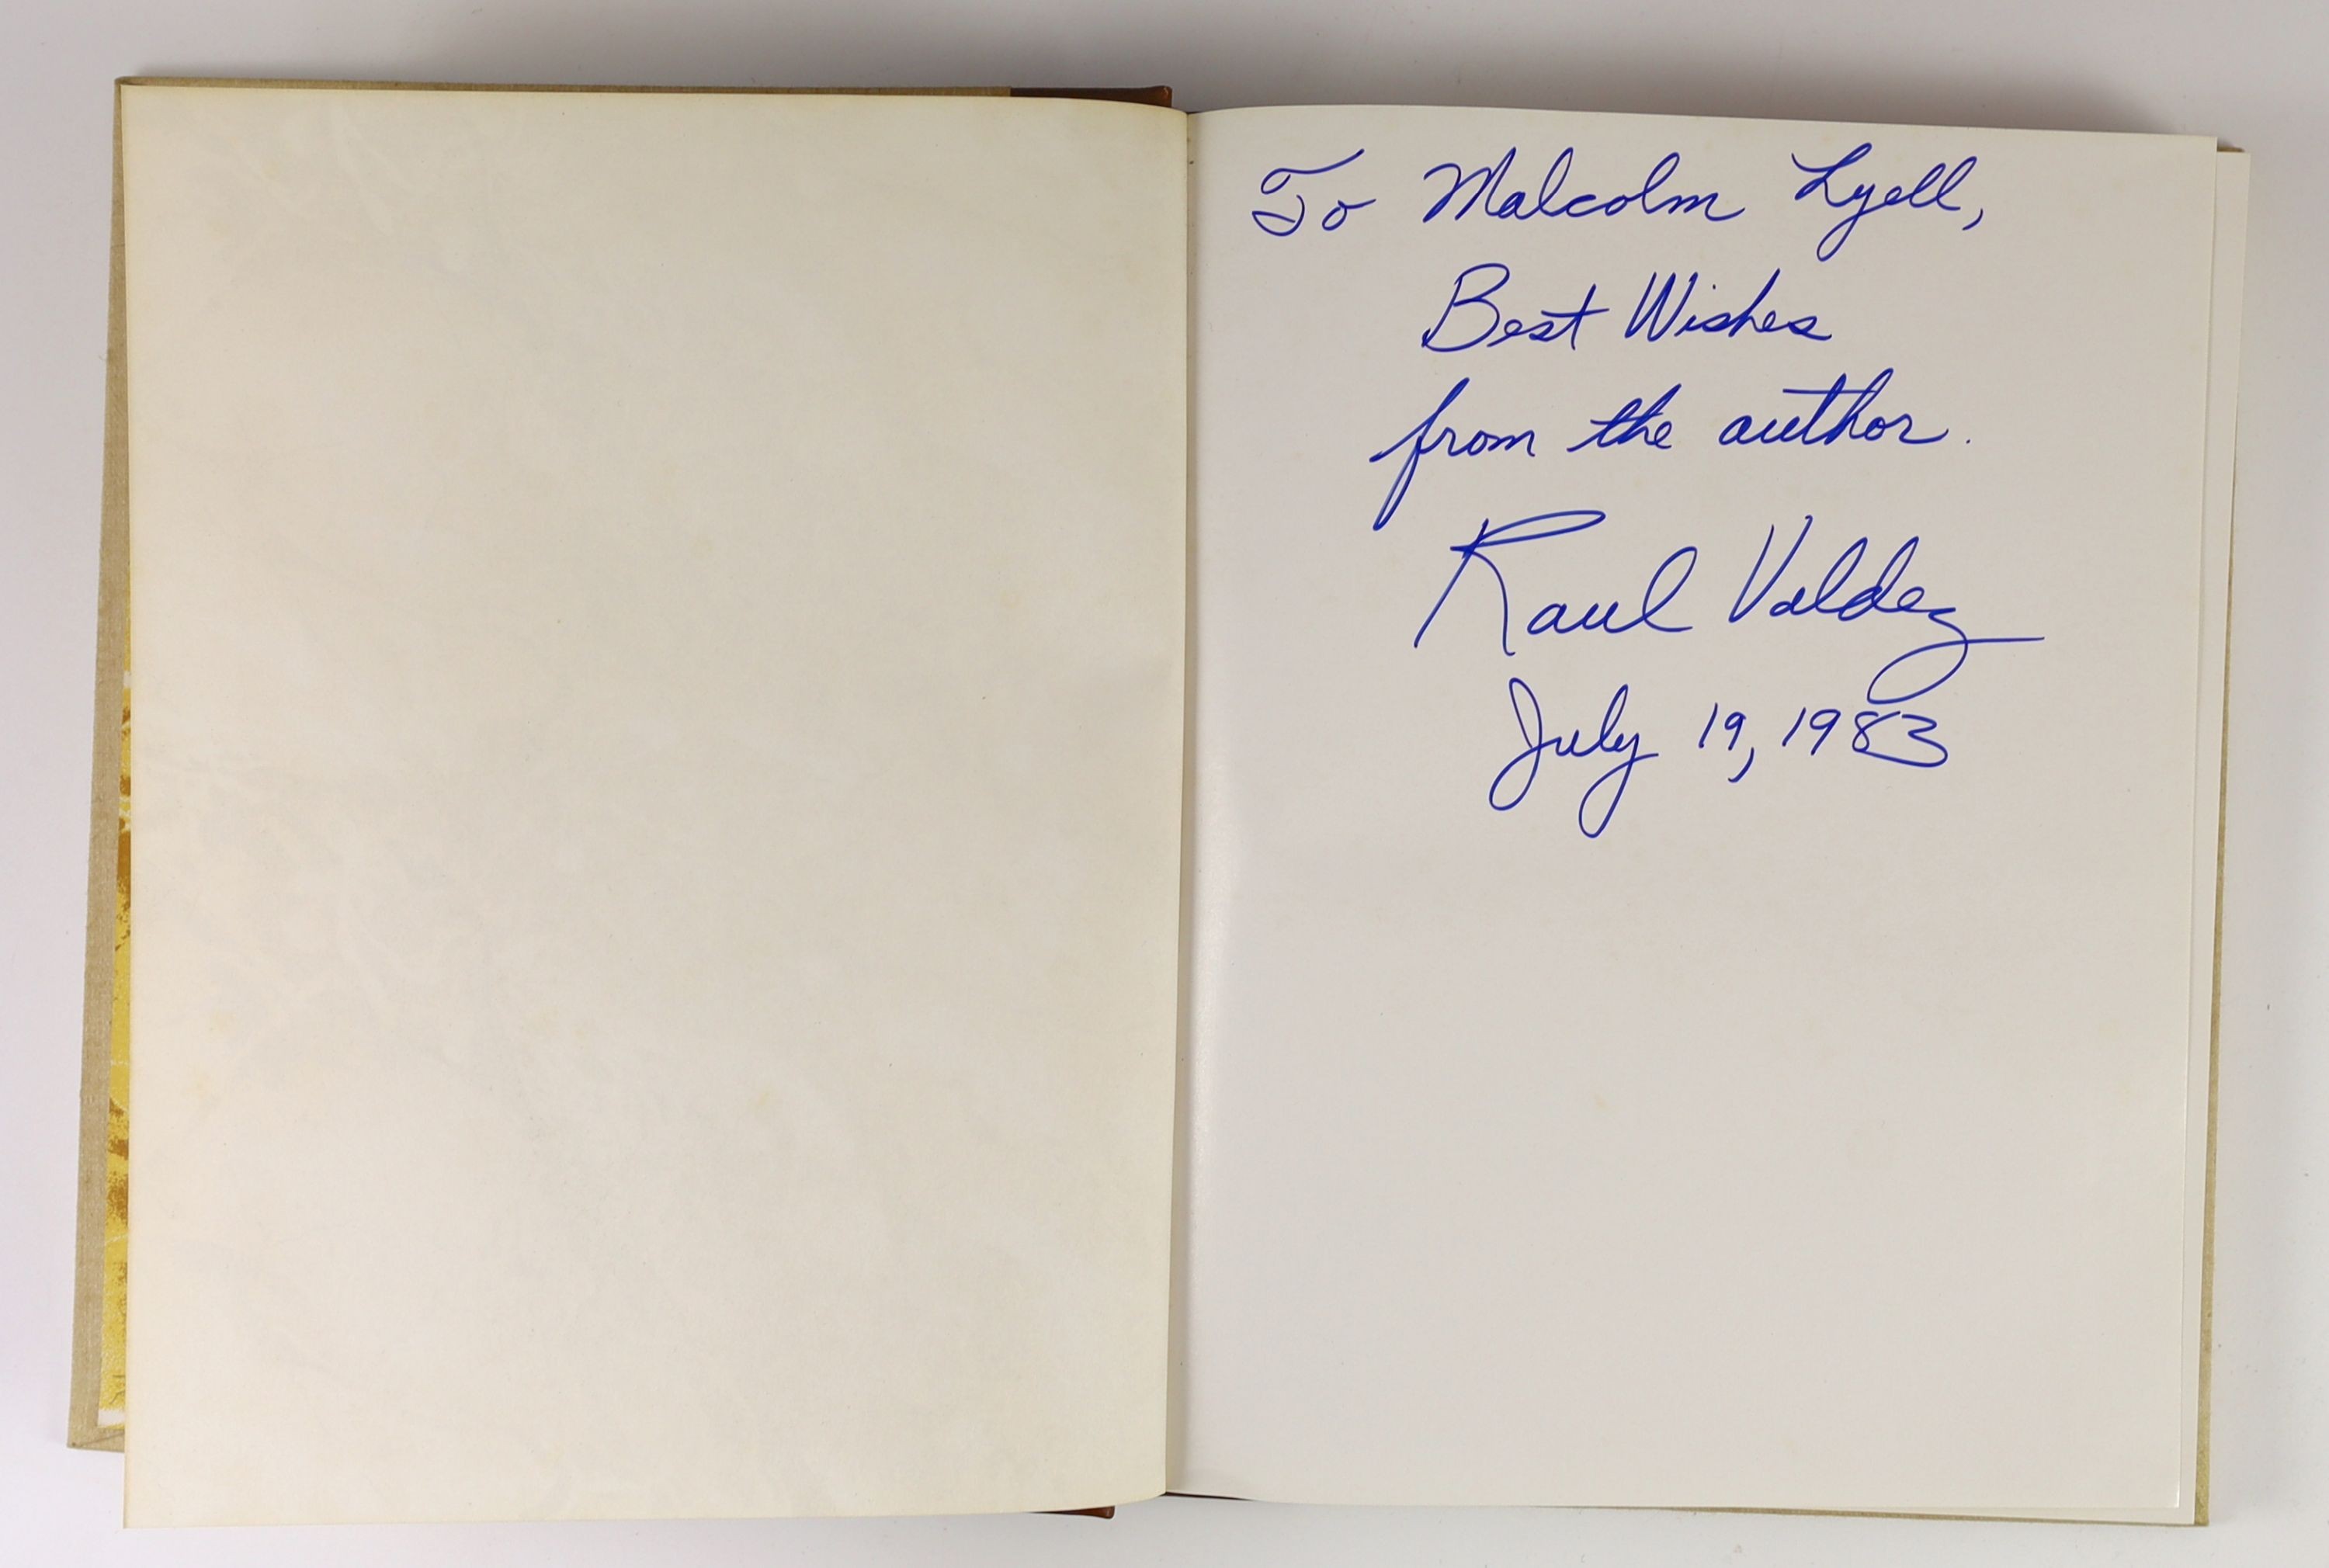 To Malcolm Lyell,
Best Wishes
from the author.
Raul Valdez
July 19, 1983